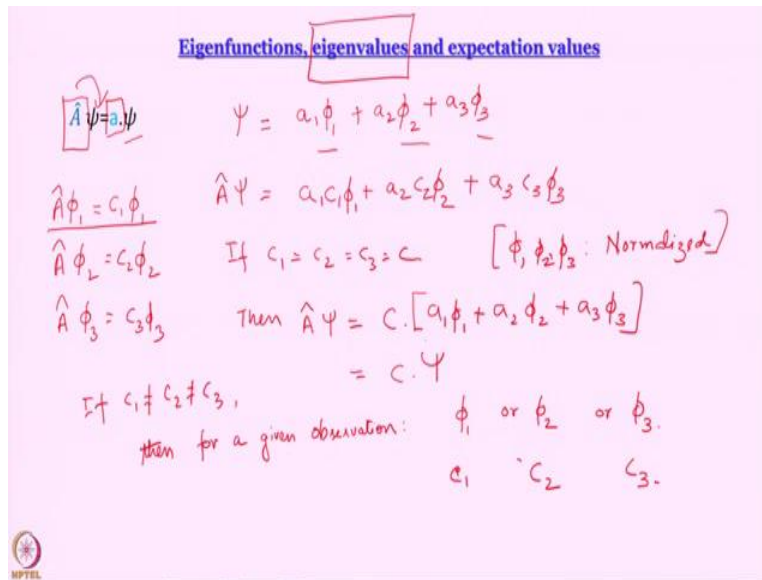 Eigenfunctions, eigenvalues and expectation values
Âψ=a.ψ
Ψ = a₁ϕ₁ + a₂ϕ₂ + a₃ϕ₃
Âϕ₁ = c₁ϕ₁
ÂΨ = a₁c₁ϕ₁ + a₂c₂ϕ₂ + a₃c₃ϕ₃
Âϕ₂ = c₂ϕ₂
If c₁ = c₂ = c₃ = c
[ϕ₁ ϕ₂ ϕ₃ : Normalized]
Âϕ₃ = c₃ϕ₃
Then ÂΨ = c.[a₁ϕ₁ + a₂ϕ₂ + a₃ϕ₃]
= c.Ψ
If c₁ ≠ c₂ ≠ c₃,
then for a given observation: ϕ₁ or ϕ₂ or ϕ₃.
c₁ c₂ c₃.
NPTEL